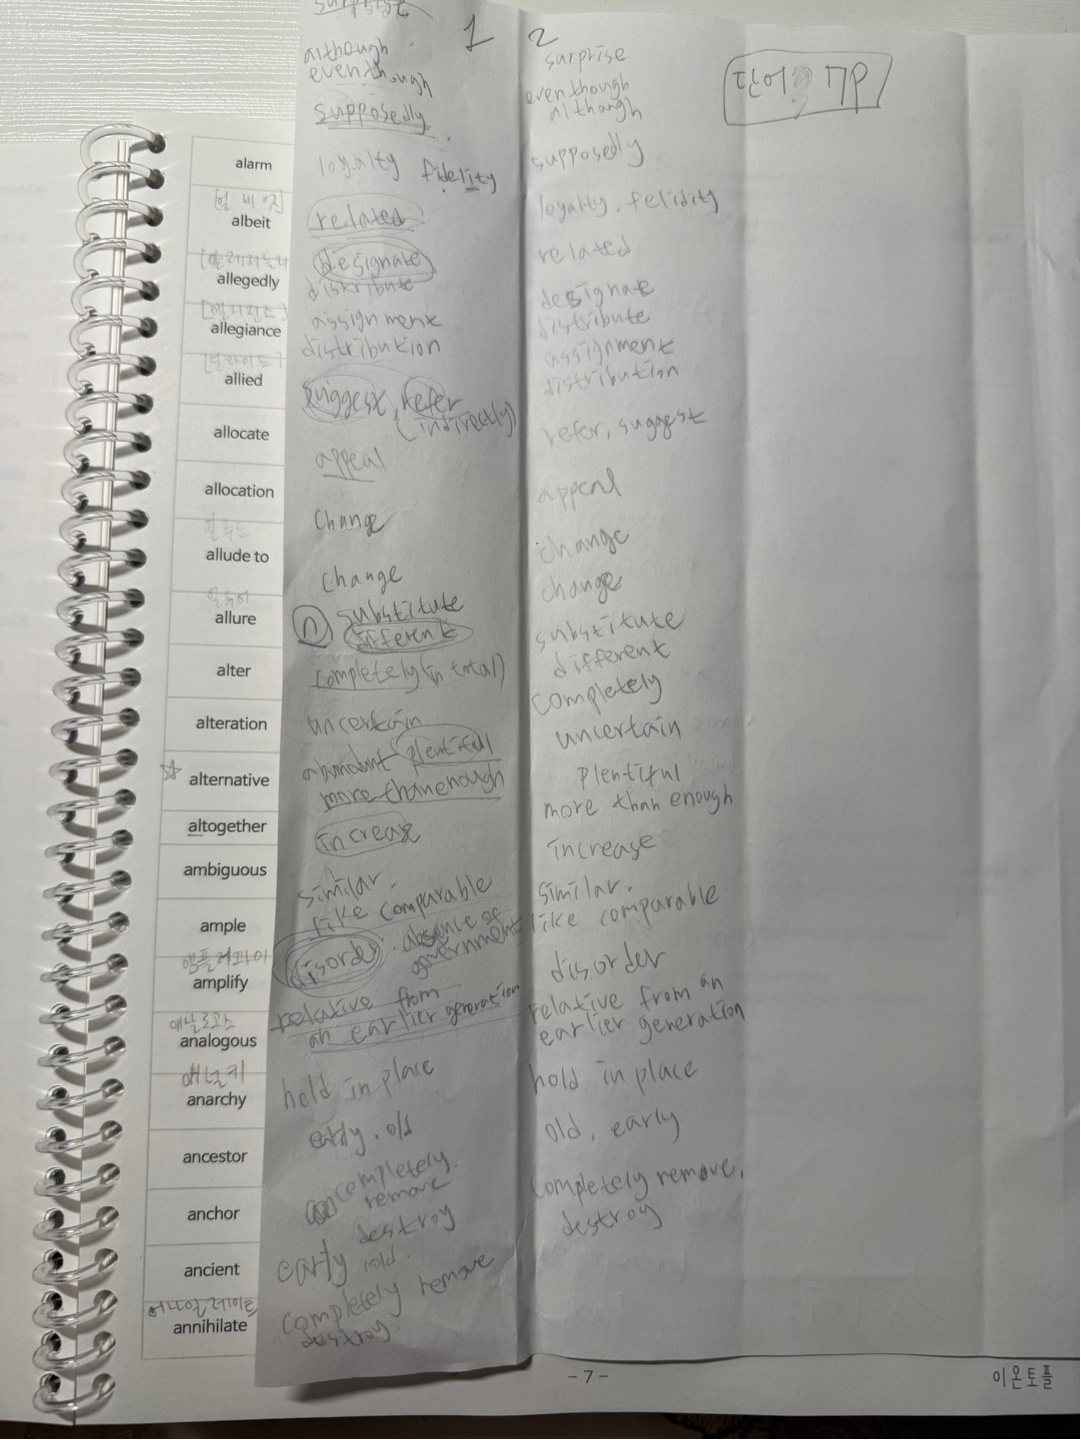 surprise
1
although
eventhough
supposedly
loyalty fidelity
related
designate
distribute
assignment
distribution
suggest, refer
(indirectly)
appeal
change
change
n substitute
different
completely (in total)
uncertain
abundant plentiful
more than enough
increase
similar.
like comparable
disorder. absence of
government
relative from
an earlier generation
hold in place
early. old
completely.
remove
destroy
early, old.
completely remove
destroy.
2
surprise
eventhough
although
supposedly
loyalty, felidity
related
designate
distribute
assignment
distribution
refer, suggest
appeal
change
change
substitute
different
completely
uncertain
plentiful
more than enough
increase
similar.
like comparable
disorder
relative from an
earlier generation
hold in place
old, early
completely remove,
destroy
단어 7P
alarm
albeit
allegedly
allegiance
allied
allocate
allocation
allude to
allure
alter
alteration
☆ alternative
altogether
ambiguous
ample
앰플리파이
amplify
애날로고스
analogous
애널키
anarchy
ancestor
anchor
ancient
어나이얼레이트
annihilate
- 7 -
이온토플